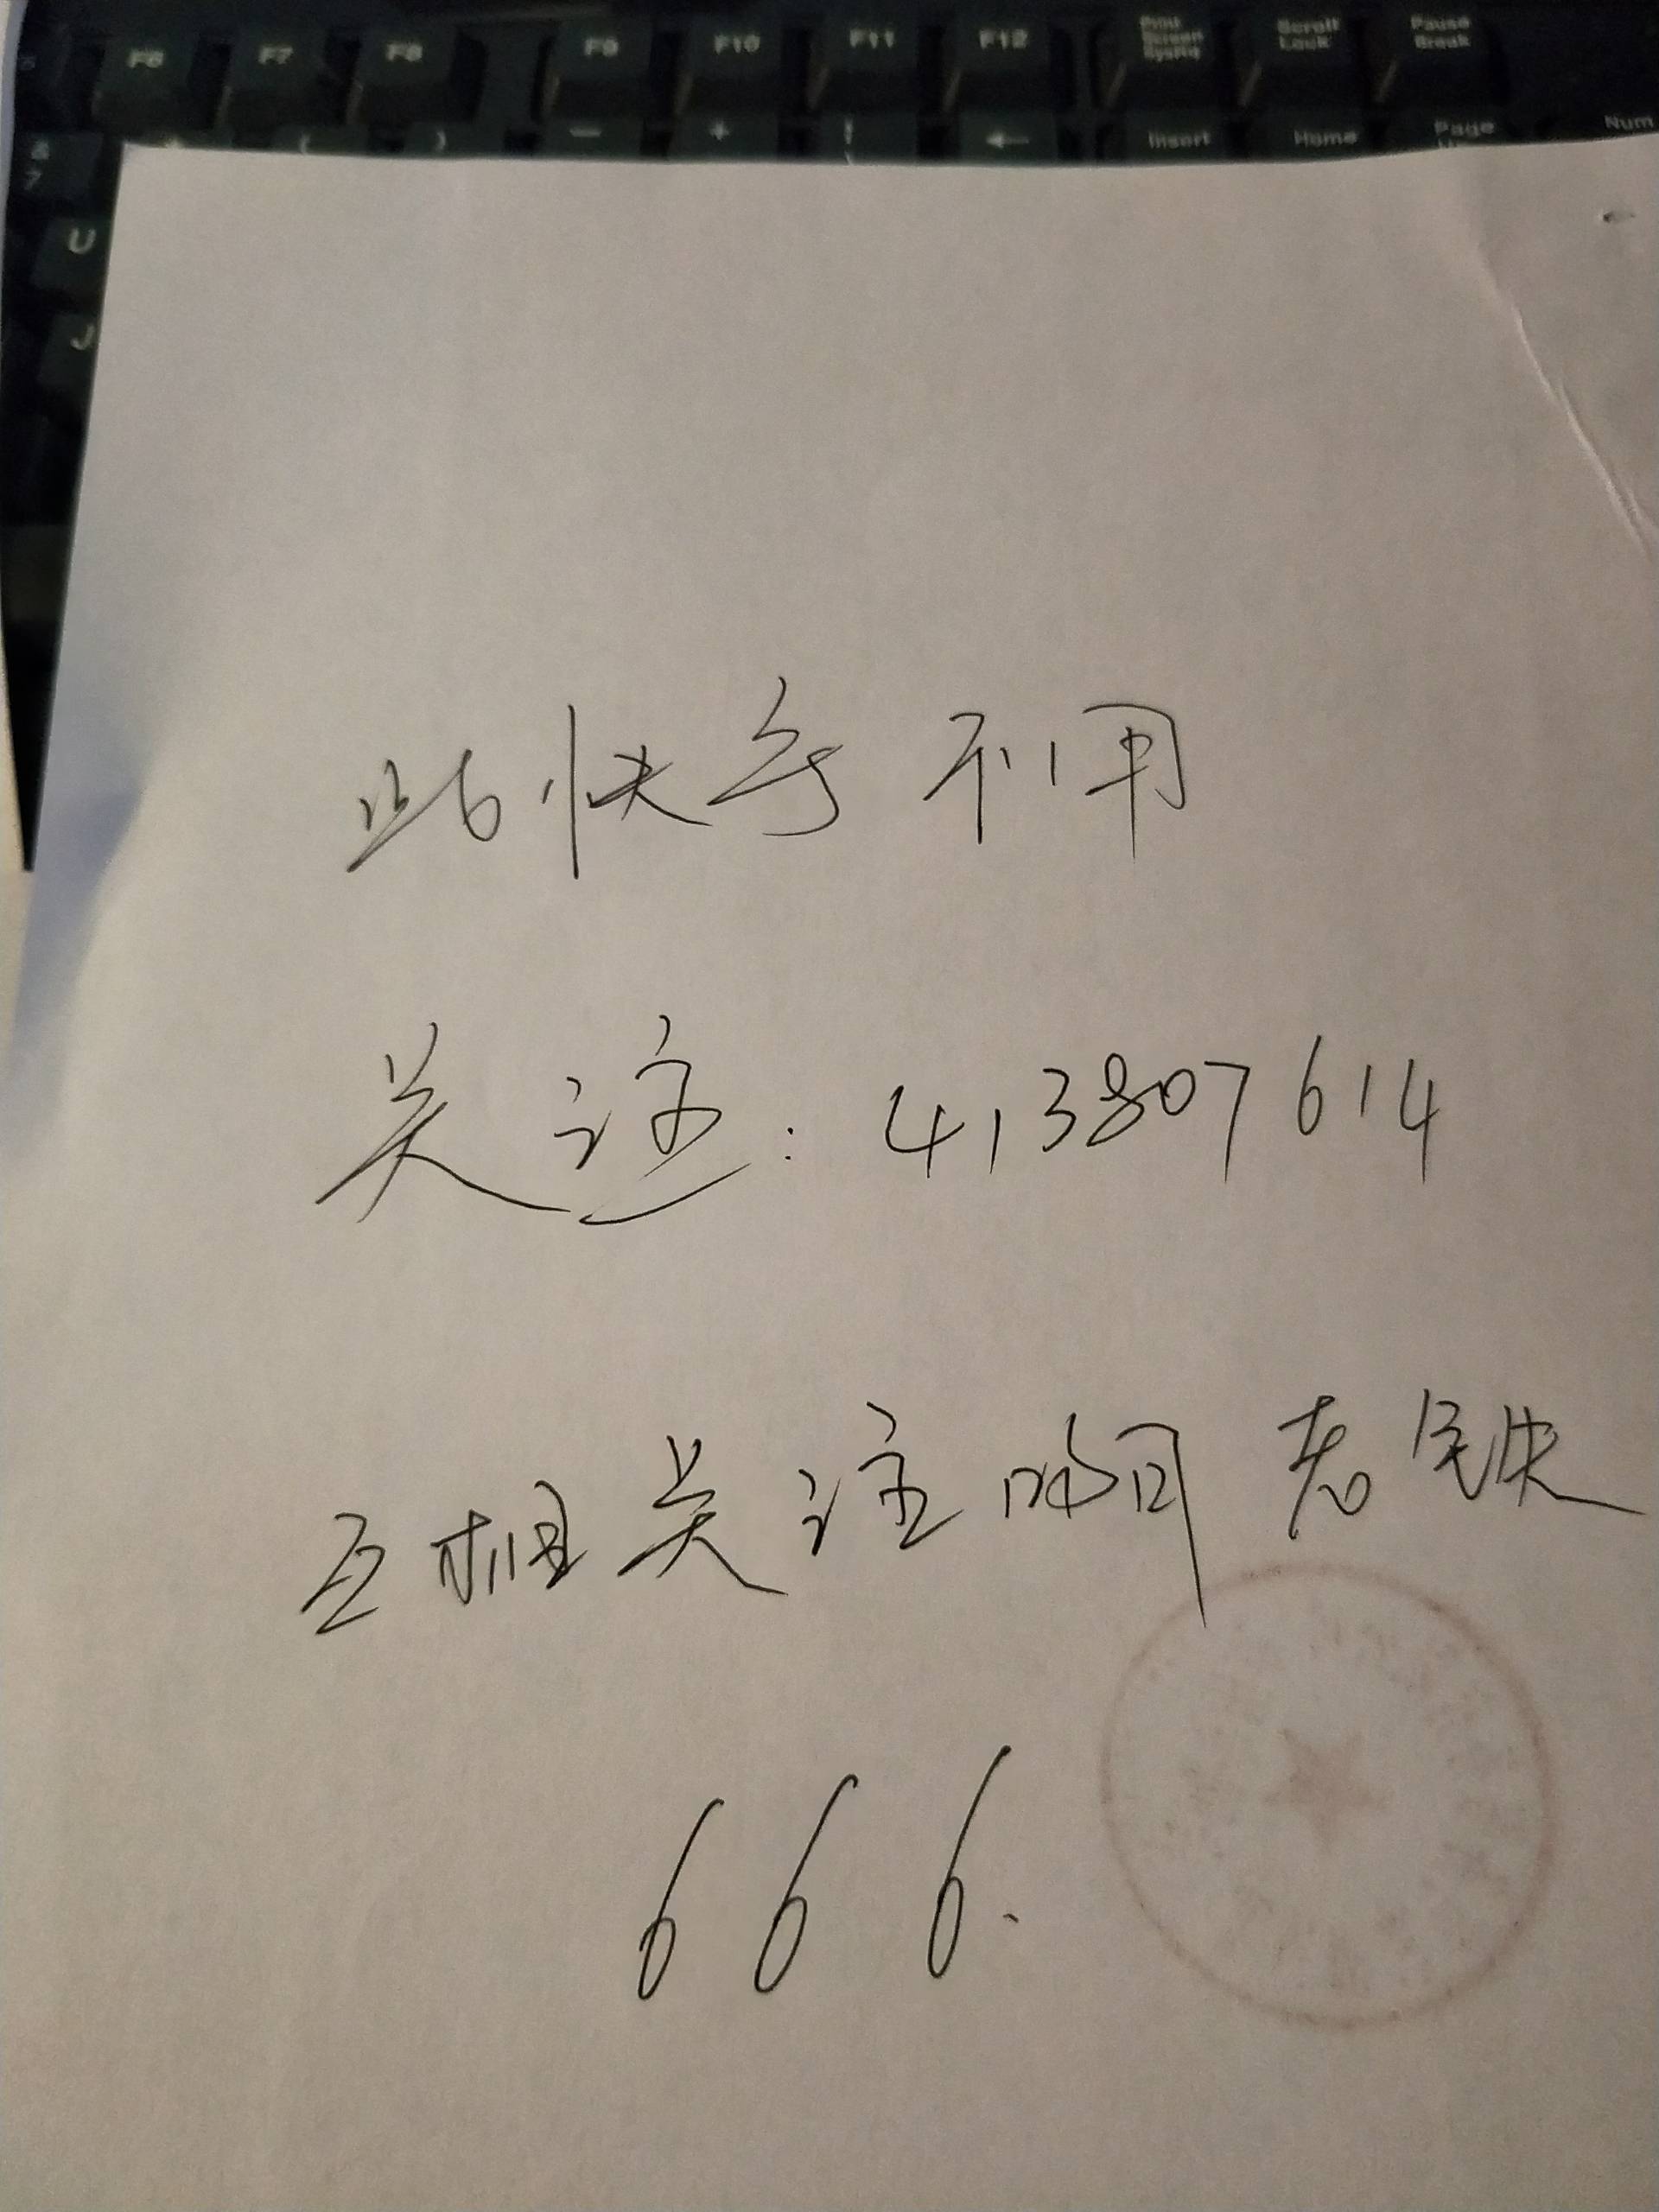 F6 F7 F8 F9 F10 F11 F12 Print Screen SysRq Scroll Lock Pause Break
& 7 * ( ) — + ← Insert Home Page Num
U
J
此快手不用
关这: 413807614
互相关注啊 老铁
666.